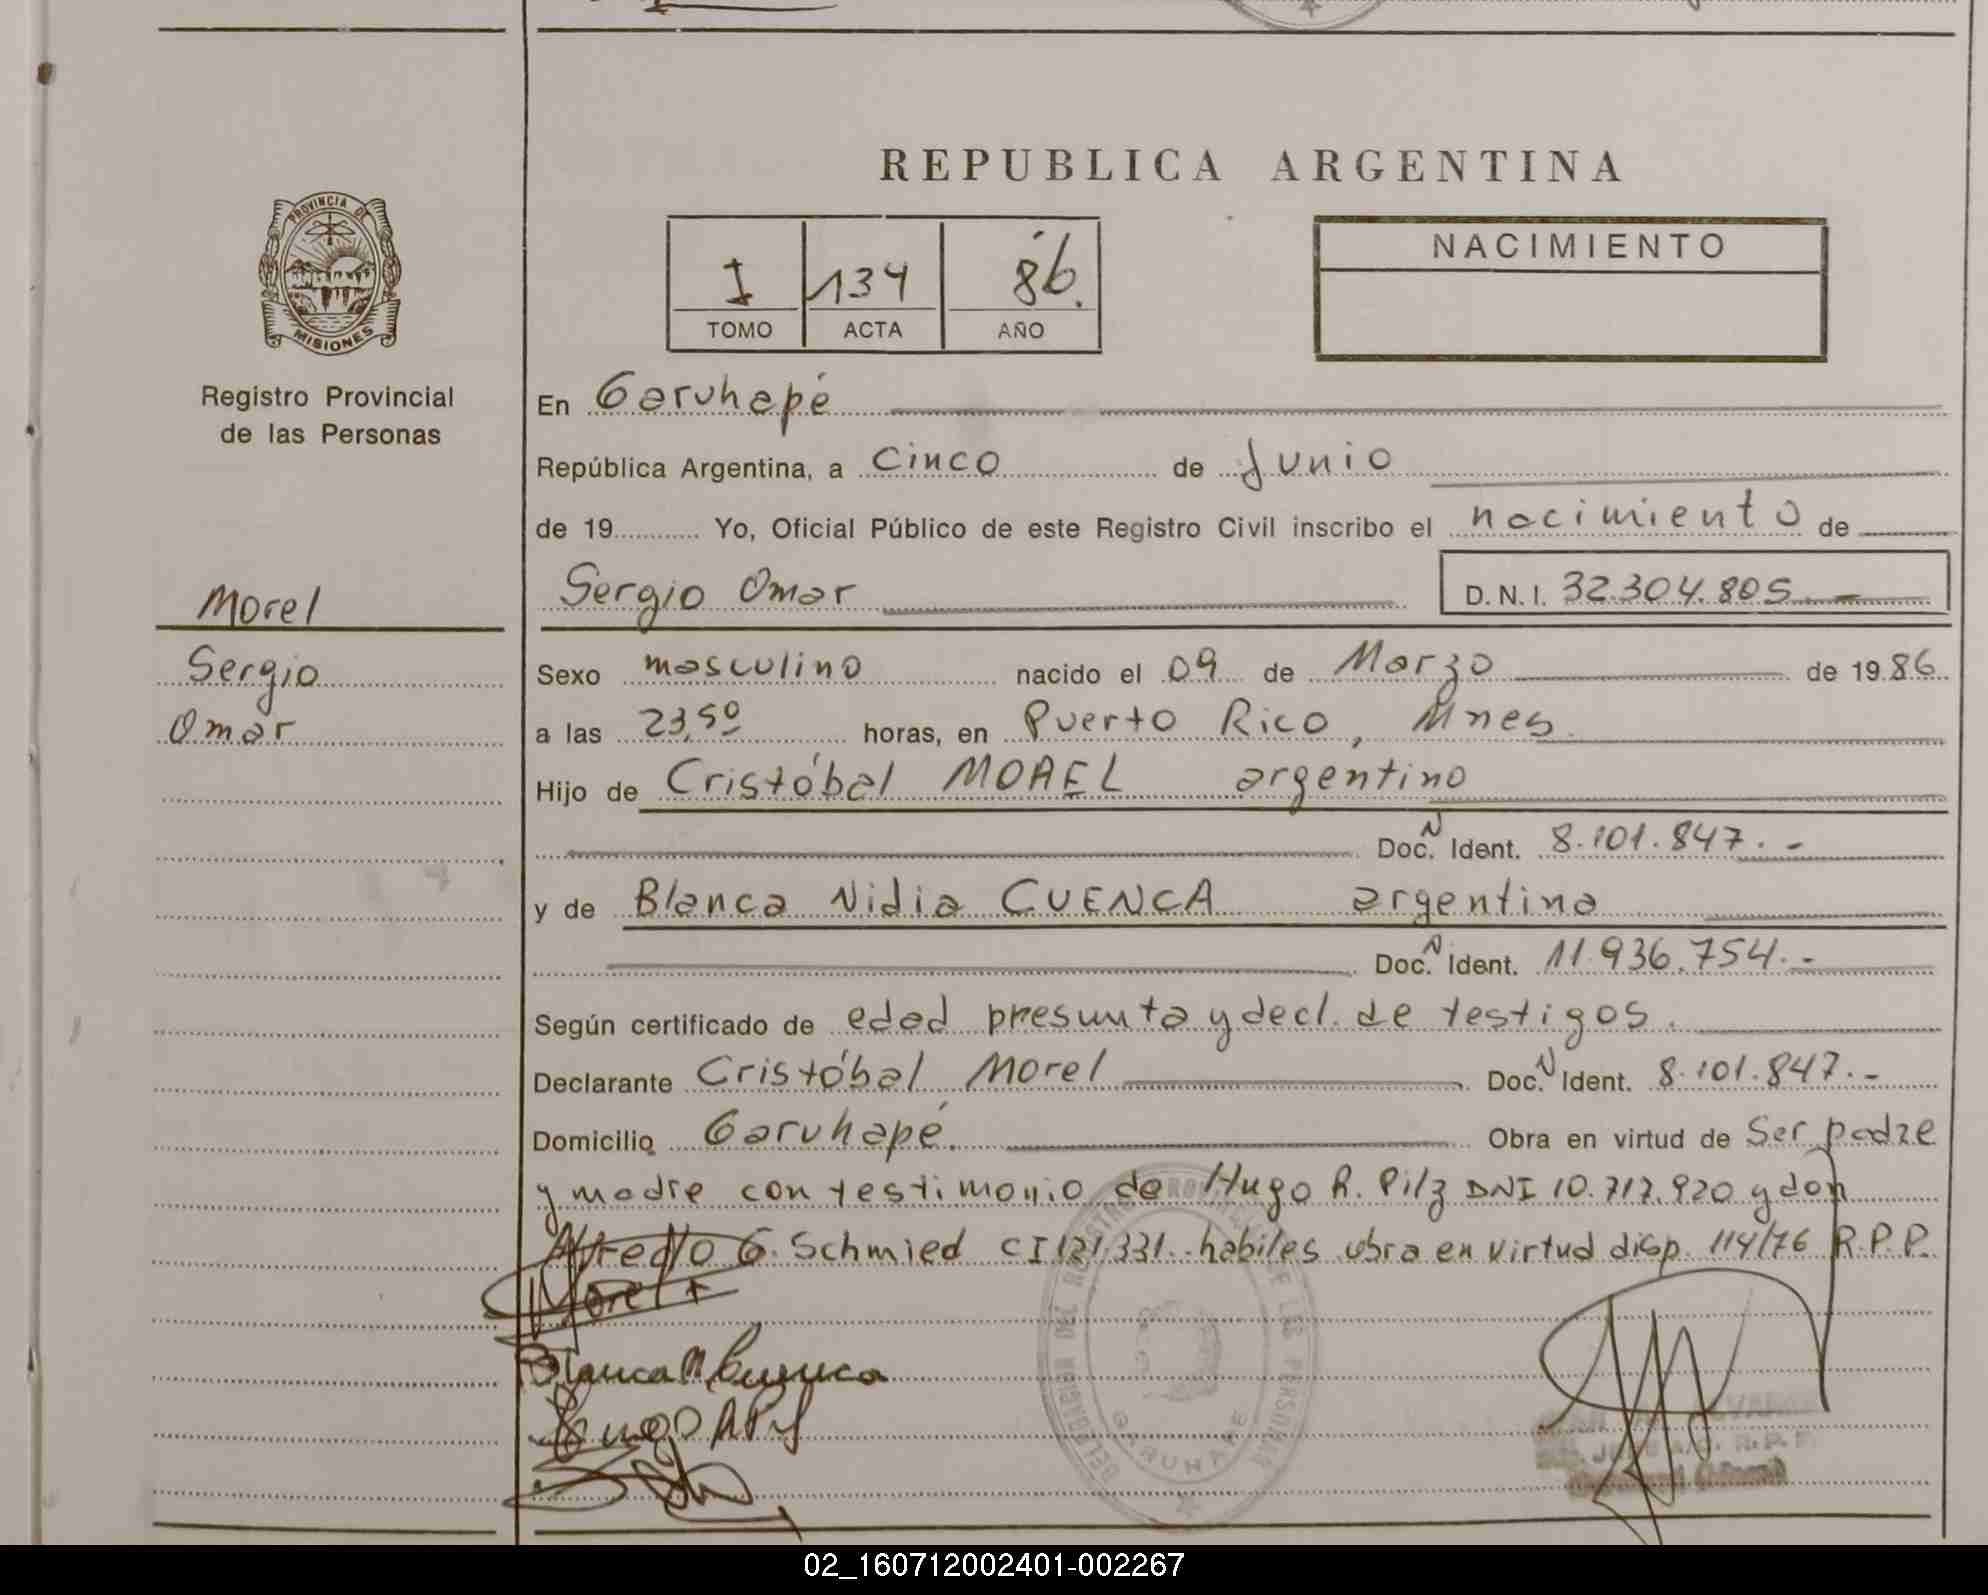 REPUBLICA ARGENTINA
PROVINCIA DE
MISIONES
Registro Provincial
de las Personas
I 134 86.
TOMO ACTA AÑO
NACIMIENTO
En Garuhapé
República Argentina, a cinco de Junio
de 19 Yo, Oficial Público de este Registro Civil inscribo el nacimiento de
Morel
Sergio
Omar
Sergio Omar D.N.I. 32.304.805.-
Sexo masculino nacido el 09 de Marzo de 1986
a las 23,50 horas, en Puerto Rico, Mnes.
Hijo de Cristóbal MOREL argentino
Doc. N Ident. 8.101.847.-
y de Blanca Nidia CUENCA argentina
Doc. N Ident. 11.936.754.-
Según certificado de edad presunta y decl. de testigos.
Declarante Cristóbal Morel Doc. N Ident. 8.101.847.-
Domicilio Garuhapé. Obra en virtud de Ser padre
y madre con testimonio de Hugo R. Pilz DNI 10.717.920 y don
Alfredo G. Schmied CI 121.331. habiles obra en virtud disp. 114/76 R.P.P.
Morel
Blanca N Cuenca
Hugo R Pilz
DELEGACION DEL REGISTRO PROVINCIAL DE LAS PERSONAS
GARUHAPE
02_160712002401-002267